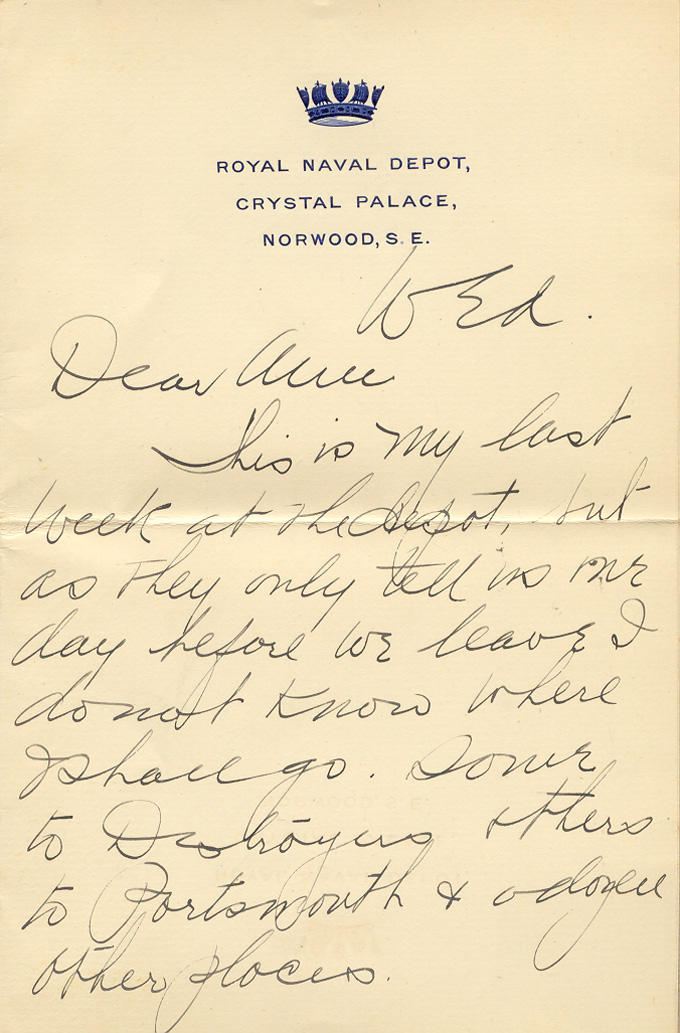 ROYAL NAVAL DEPOT,
CRYSTAL PALACE,
NORWOOD, S.E.
WEd.
Dear
This is my last
week at the depot, but
as they only tell us one
day before we leave I
do not know where
I shall go. Some
to Destroyers others
to Portsmouth & a dozen
other places.